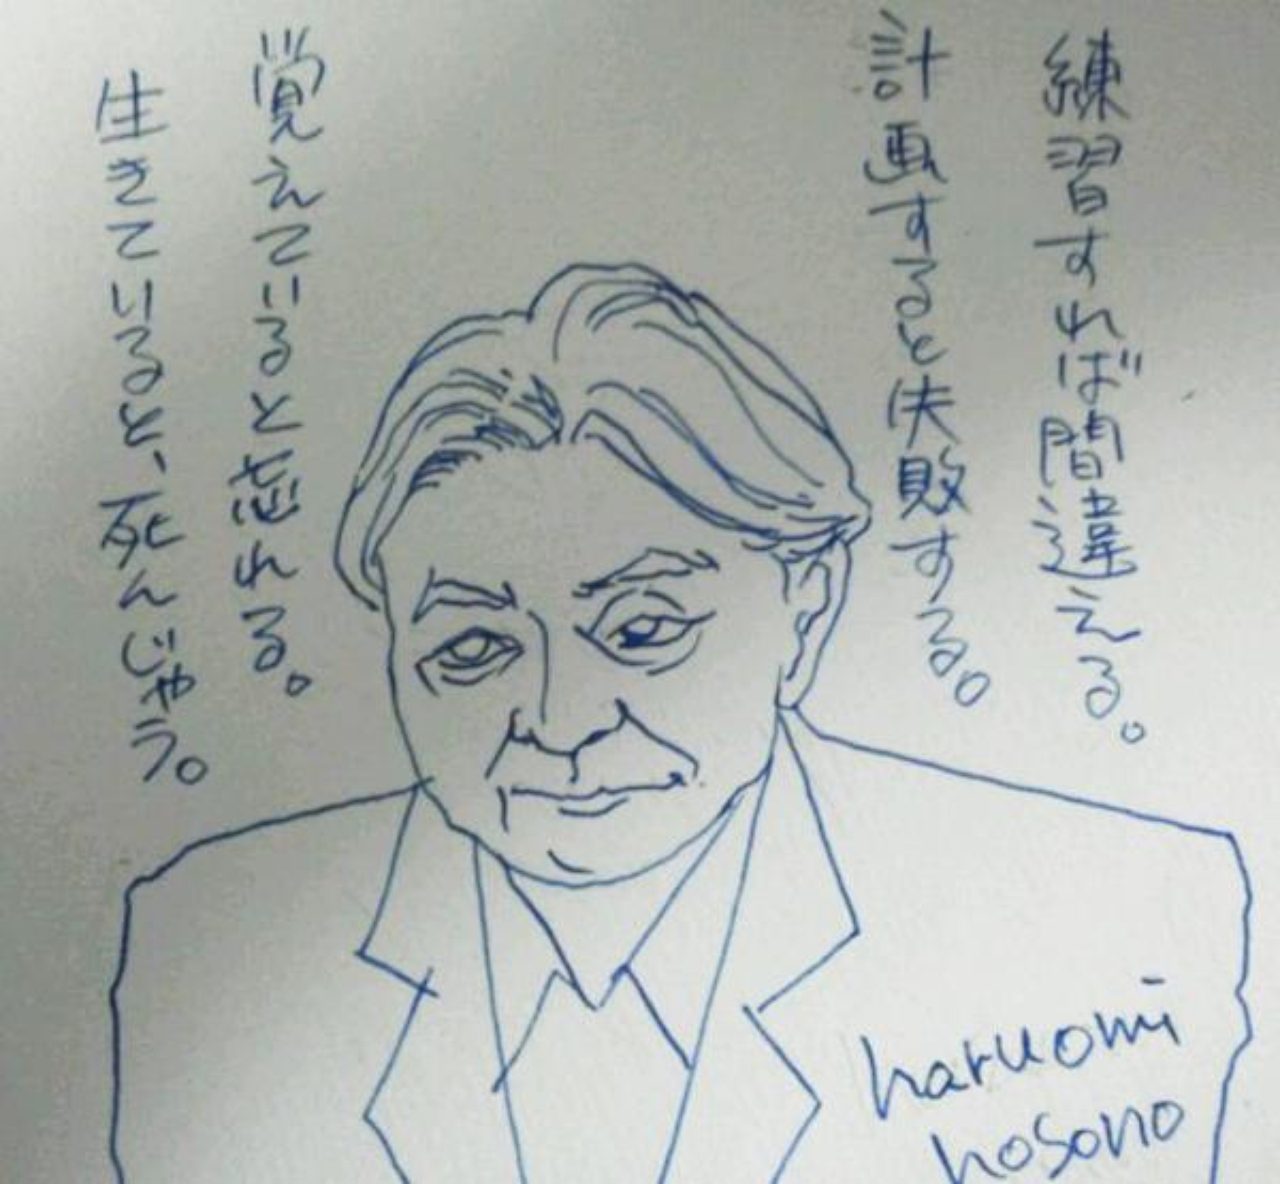 練習すれば間違える。
計画すると失敗する。
覚えていると忘れる。
生きていると、死んじゃう。
haruomi
hosono